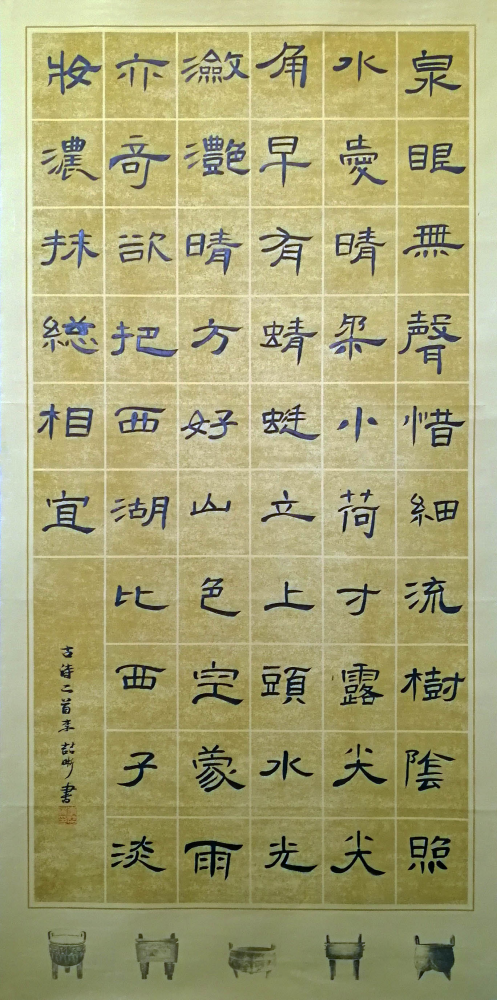 泉眼無聲惜細流樹陰照
水愛晴柔小荷才露尖尖
角早有蜻蜓立上頭水光
瀲灧晴方好山色空蒙雨
亦奇欲把西湖比西子淡
妝濃抹總相宜
古詩二首李書